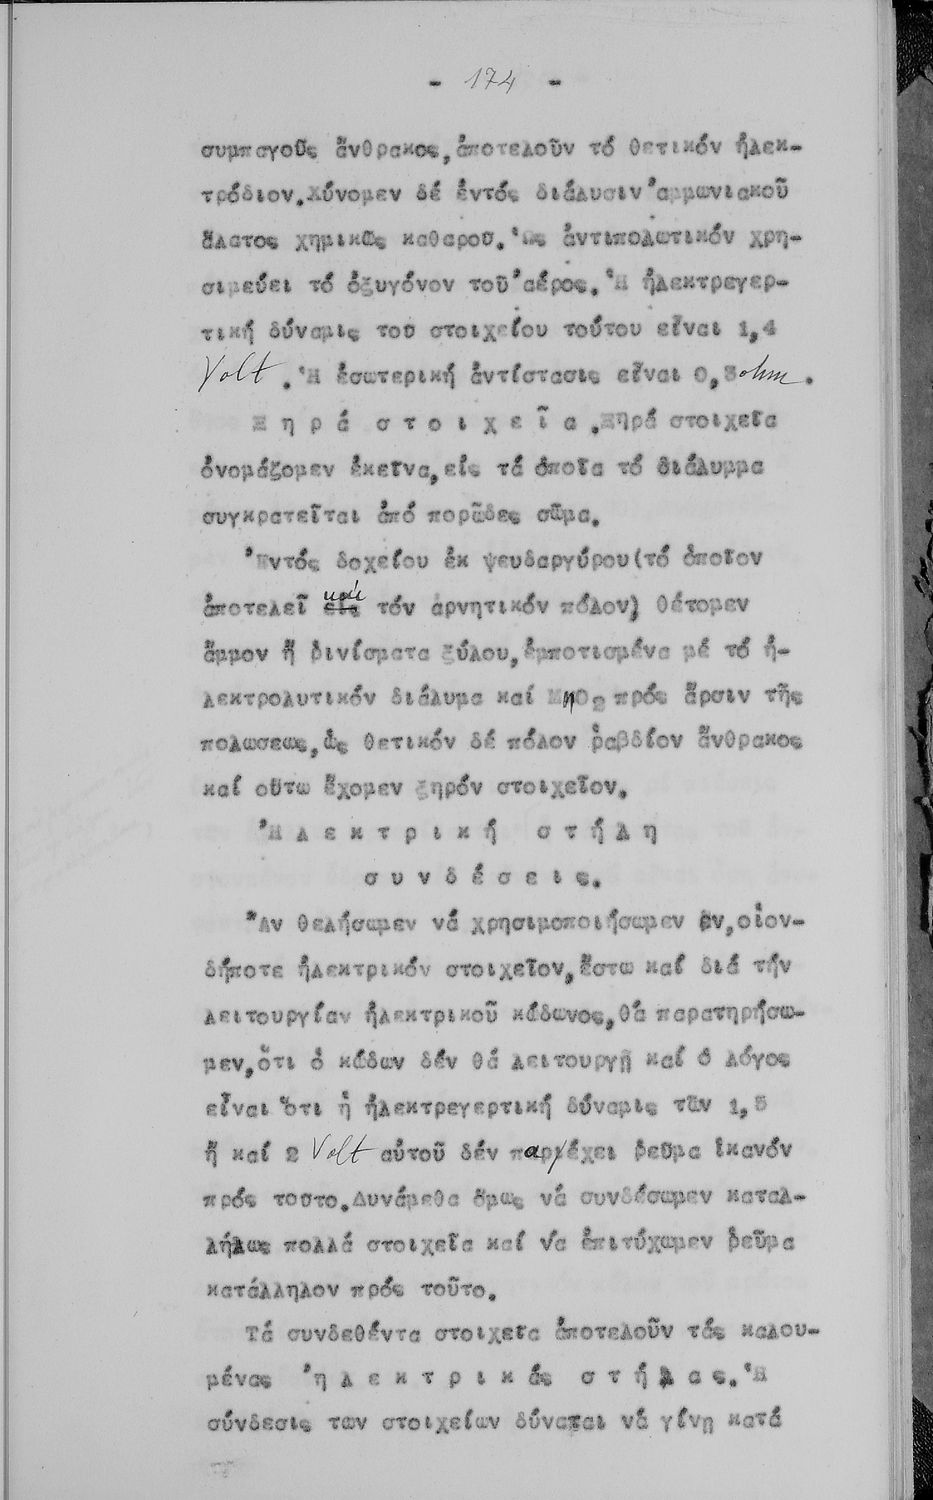 - 174 -
συμπαγοῦς ἄνθρακος, ἀποτελοῦν τό θετικόν ἠλεκ-
τρόδιον. Χύνομεν δέ ἐντός διάλυσιν ἀμμωνιακοῦ
ἅλατος χημικῶς καθαροῦ. Ὡς ἀντιπολωτικόν χρη-
σιμεύει τό ὀξυγόνον τοῦ ἀέρος. Ἡ ἠλεκτρεγερ-
τική δύναμις του στοιχείου τούτου εἶναι 1,4
Volt. Ἡ ἐσωτερική ἀντίστασις εἶναι 0,3 ohm.
Ξ η ρ ά σ τ ο ι χ ε ῖ α. Ξηρά στοιχεῖα
ὀνομάζομεν ἐκεῖνα, εἰς τά ὁποῖα τό διάλυμμα
συγκρατεῖται ἀπό πορῶδες σῶμα.
Ἐντός δοχείου ἐκ ψευδαργύρου (τό ὁποῖον
ἀποτελεῖ καί τόν ἀρνητικόν πόλον) θέτομεν
ἄμμον ἤ ῥινίσματα ξύλου, ἐμποτισμένα μέ τό ἠ-
λεκτρολυτικόν διάλυμα καί MnO2 πρός ἄρσιν τῆς
πολωσεως, ὡς θετικόν δέ πόλον ῥαβδίον ἄνθρακος
καί οὕτω ἔχομεν ξηρόν στοιχεῖον.
Ἠ λ ε κ τ ρ ι κ ή σ τ ή λ η
σ υ ν δ έ σ ε ι ς.
Ἄν θελήσωμεν νά χρησιμοποιήσωμεν ἕν, οἱον-
δήποτε ἠλεκτρικόν στοιχεῖον, ἔστω καί διά τήν
λειτουργίαν ἠλεκτρικοῦ κώδωνος, θά παρατηρήσω-
μεν, ὅτι ὁ κώδων δέν θά λειτουργῇ καί ὁ λόγος
εἶναι ὅτι ἡ ἠλεκτρεγερτική δύναμις τῶν 1,5
ἤ καί 2 Volt αὐτοῦ δέν παρέχει ῥεῦμα ἱκανόν
πρός τουτο. Δυνάμεθα ὅμως νά συνδέσωμεν καταλ-
λήλως πολλά στοιχεῖα καί νά ἐπιτύχωμεν ῥεῦμα
κατάλληλον πρός τοῦτο.
Τά συνδεθέντα στοιχεῖα ἀποτελοῦν τάς καλου-
μένας ἠ λ ε κ τ ρ ι κ άς σ τ ή λ α ς. Ἡ
σύνδεσις των στοιχείων δύναται νά γίνῃ κατά